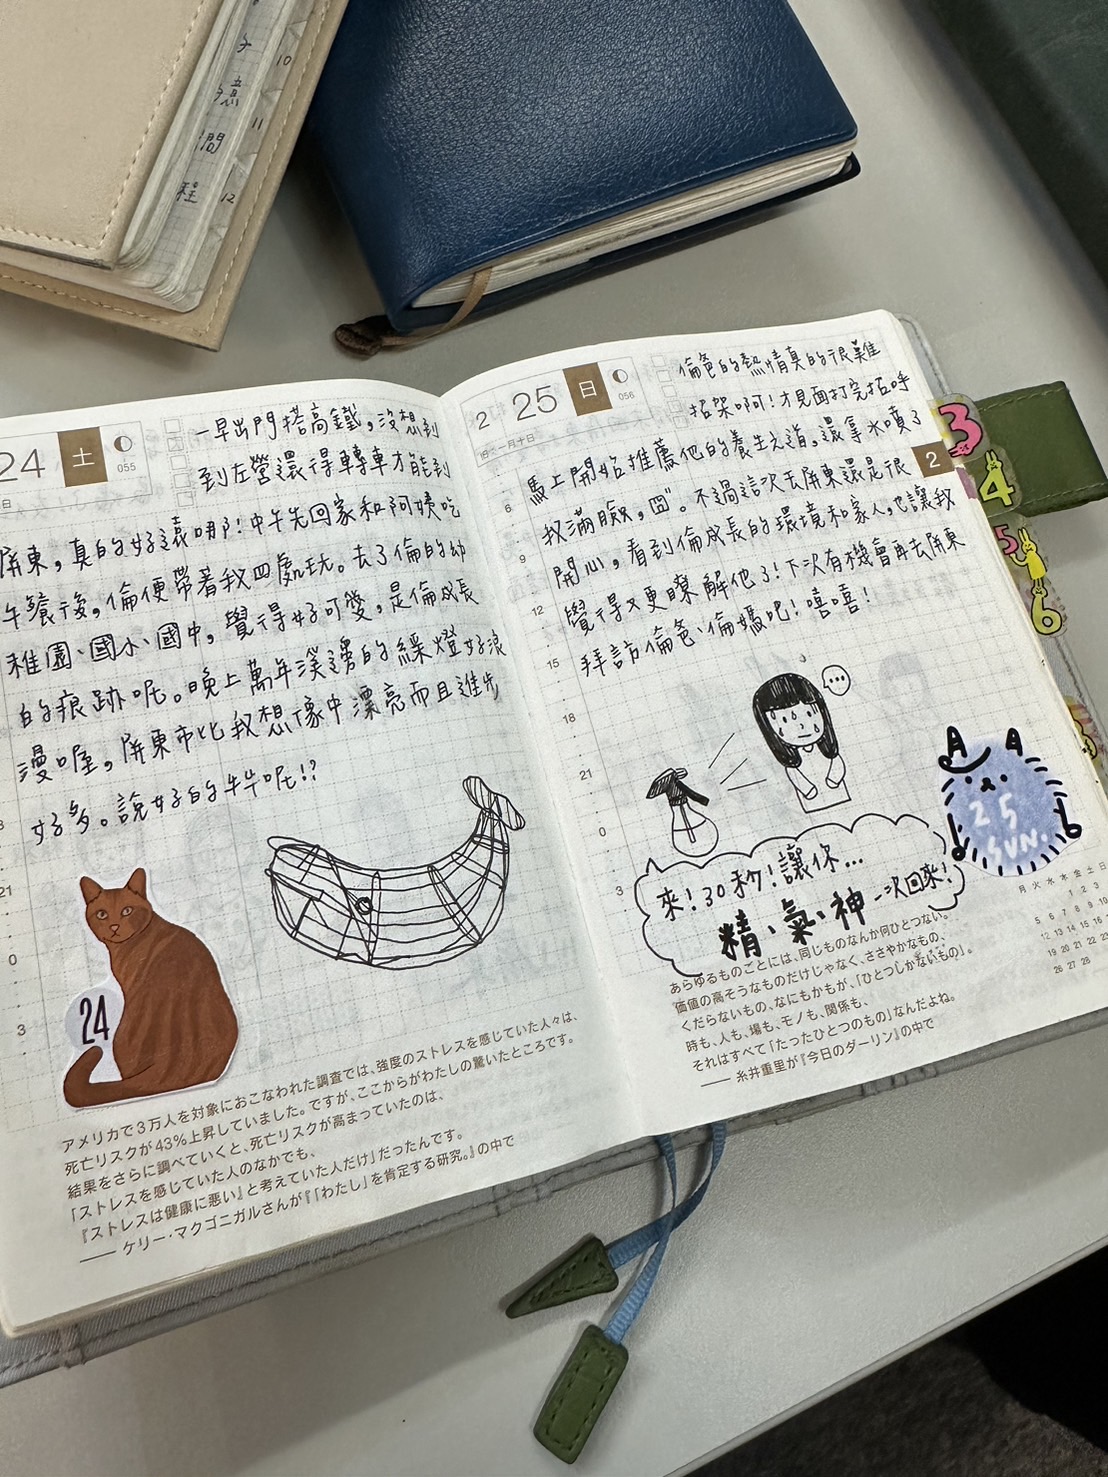 10
11
12
意
問
程
24 土
055
日
一早出門搭高鐵，沒想到
到左營還得轉車才能到
屏東，真的好遠哪！中午先回家和阿姨吃
午餐後，倫便帶著我四處玩。去了倫的幼
稚園、國小、國中，覺得好可愛，是倫成長
的痕跡呢。晚上萬年溪邊的綵燈好浪
漫喔，屏東市比我想像中漂亮而且進步
好多。說好的牛牛呢!?
21
0
3
24
アメリカで3万人を対象におこなわれた調査では、強度のストレスを感じていた人々は、
死亡リスクが43%上昇していました。ですが、ここからがわたしの驚いたところです。
結果をさらに調べていくと、死亡リスクが高まっていたのは、
「ストレスを感じていた人のなかでも、
『ストレスは健康に悪い』と考えていた人だけ」だったんです。
── ケリー・マクゴニガルさんが『「わたし」を肯定する研究。』の中で
2 25 日
056
旧 一月十日
倫爸的熱情真的很難
招架啊！才見面打完招呼
馬上開始推薦他的養生之道，還拿水噴了
我滿臉，囧"。不過這次去屏東還是很
開心，看到倫成長的環境和家人，也讓我
覺得又更瞭解他了！下次有機會再去屏東
拜訪倫爸、倫媽吧！嘻嘻！
6
9
12
15
18
21
0
3
...
來！30秒！讓你...
精、氣、神 一次回來！
25
SUN.
あらゆるものごとには、同じものなんか何ひとつない。
価値の高そうなものだけじゃなく、ささやかなもの、
くだらないもの、なにもかもが、「ひとつしかないもの」。
時も、人も、場も、モノも、関係も、
それはすべて「たったひとつのもの」なんだよね。
── 糸井重里が『今日のダーリン』の中で
月 火 水 木 金 土 日
1 2 3
5 6 7 8 9 10
12 13 14 15 16 17
19 20 21 22 23
26 27 28
2
3
4
5
6